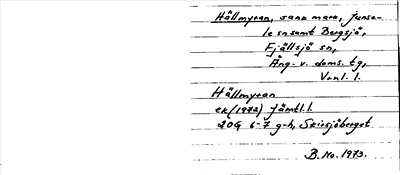 Hällmyran, sank mark, Junse-
le sn samt Bergsjö,
Fjällsjö sn,
Ång. v. doms. tg,
V.nl. l.
Hällmyran
ek (1972) Jämtl. l.
20G 6-7 g-h, Skirsjöberget
B. No. 1973.